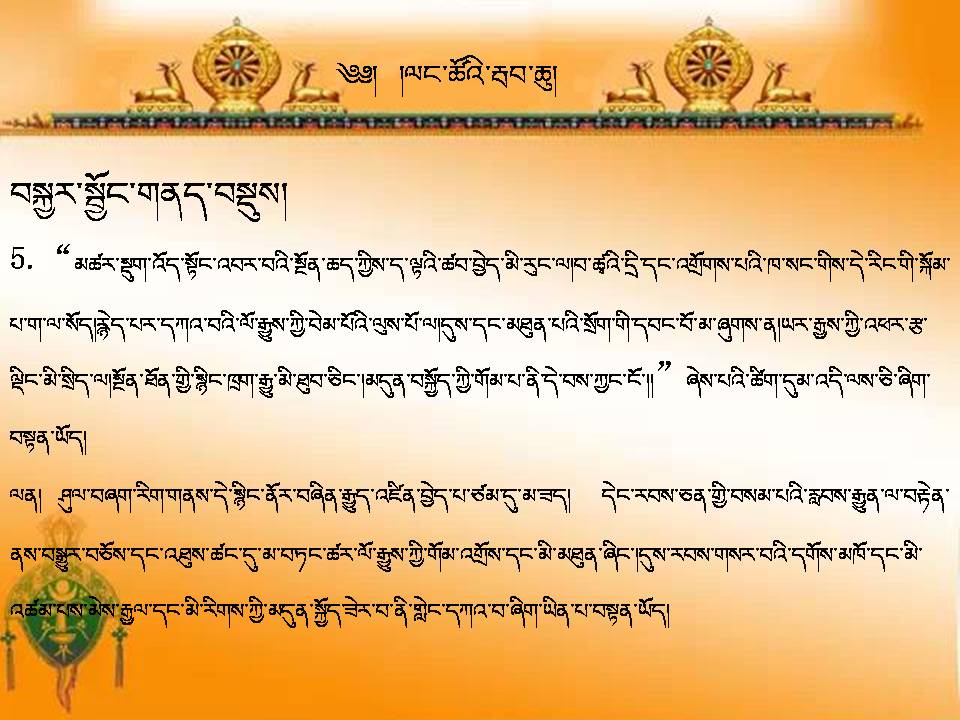 ༄༅། །ལང་ཚོའི་རྦབ་ཆུ།
བསྐྱར་སྦྱོང་གནད་བསྡུས།
5. “མཚར་སྡུག་འོད་སྟོང་འབར་བའི་སྔོན་ཆད་ཀྱིས་ད་ལྟའི་ཚབ་བྱེད་མི་རུང་ལ།བ་ཚྭའི་དྲི་དང་འགྲོགས་པའི་ཁ་སང་གིས་དེ་རིང་གི་སྐོམ་
པ་ག་ལ་སོད།རྙེད་པར་དཀའ་བའི་ལོ་རྒྱུས་ཀྱི་བེམ་པོའི་ལུས་པོ་ལ།དུས་དང་མཐུན་པའི་སྲོག་གི་དབང་པོ་མ་ཞུགས་ན།ཡར་རྒྱས་ཀྱི་འཕར་རྩ་
ལྡིང་མི་སྲིད་ལ།སྔོན་ཐོན་གྱི་སྙིང་ཁྲག་རྒྱུ་མི་ཐུབ་ཅིང་།མདུན་བསྐྱོད་ཀྱི་གོམ་པ་ནི་དེ་བས་ཀྱང་ངོ་།།” ཞེས་པའི་ཚིག་དུམ་འདི་ལས་ཅི་ཞིག་
བསྟན་ཡོད།
ལན། ཤུལ་བཞག་རིག་གནས་དེ་སྙིང་ནོར་བཞིན་རྒྱུད་འཛིན་བྱེད་པ་ཙམ་དུ་མ་ཟད། དེང་རབས་ཅན་གྱི་བསམ་པའི་རླབས་རྒྱུན་ལ་བརྟེན་
ནས་བསྒྱུར་བཅོས་དང་འཐུས་ཚང་དུ་མ་བཏང་ཚར་ལོ་རྒྱུས་ཀྱི་གོམ་འགྲོས་དང་མི་མཐུན་ཞིང་།དུས་རབས་གསར་བའི་དགོས་མཁོ་དང་མི་
འཚམ་པས་མེས་རྒྱལ་དང་མི་རིགས་ཀྱི་མདུན་སྐྱོད་ཟེར་བ་ནི་གླེང་དཀའ་བ་ཞིག་ཡིན་པ་བསྟན་ཡོད།